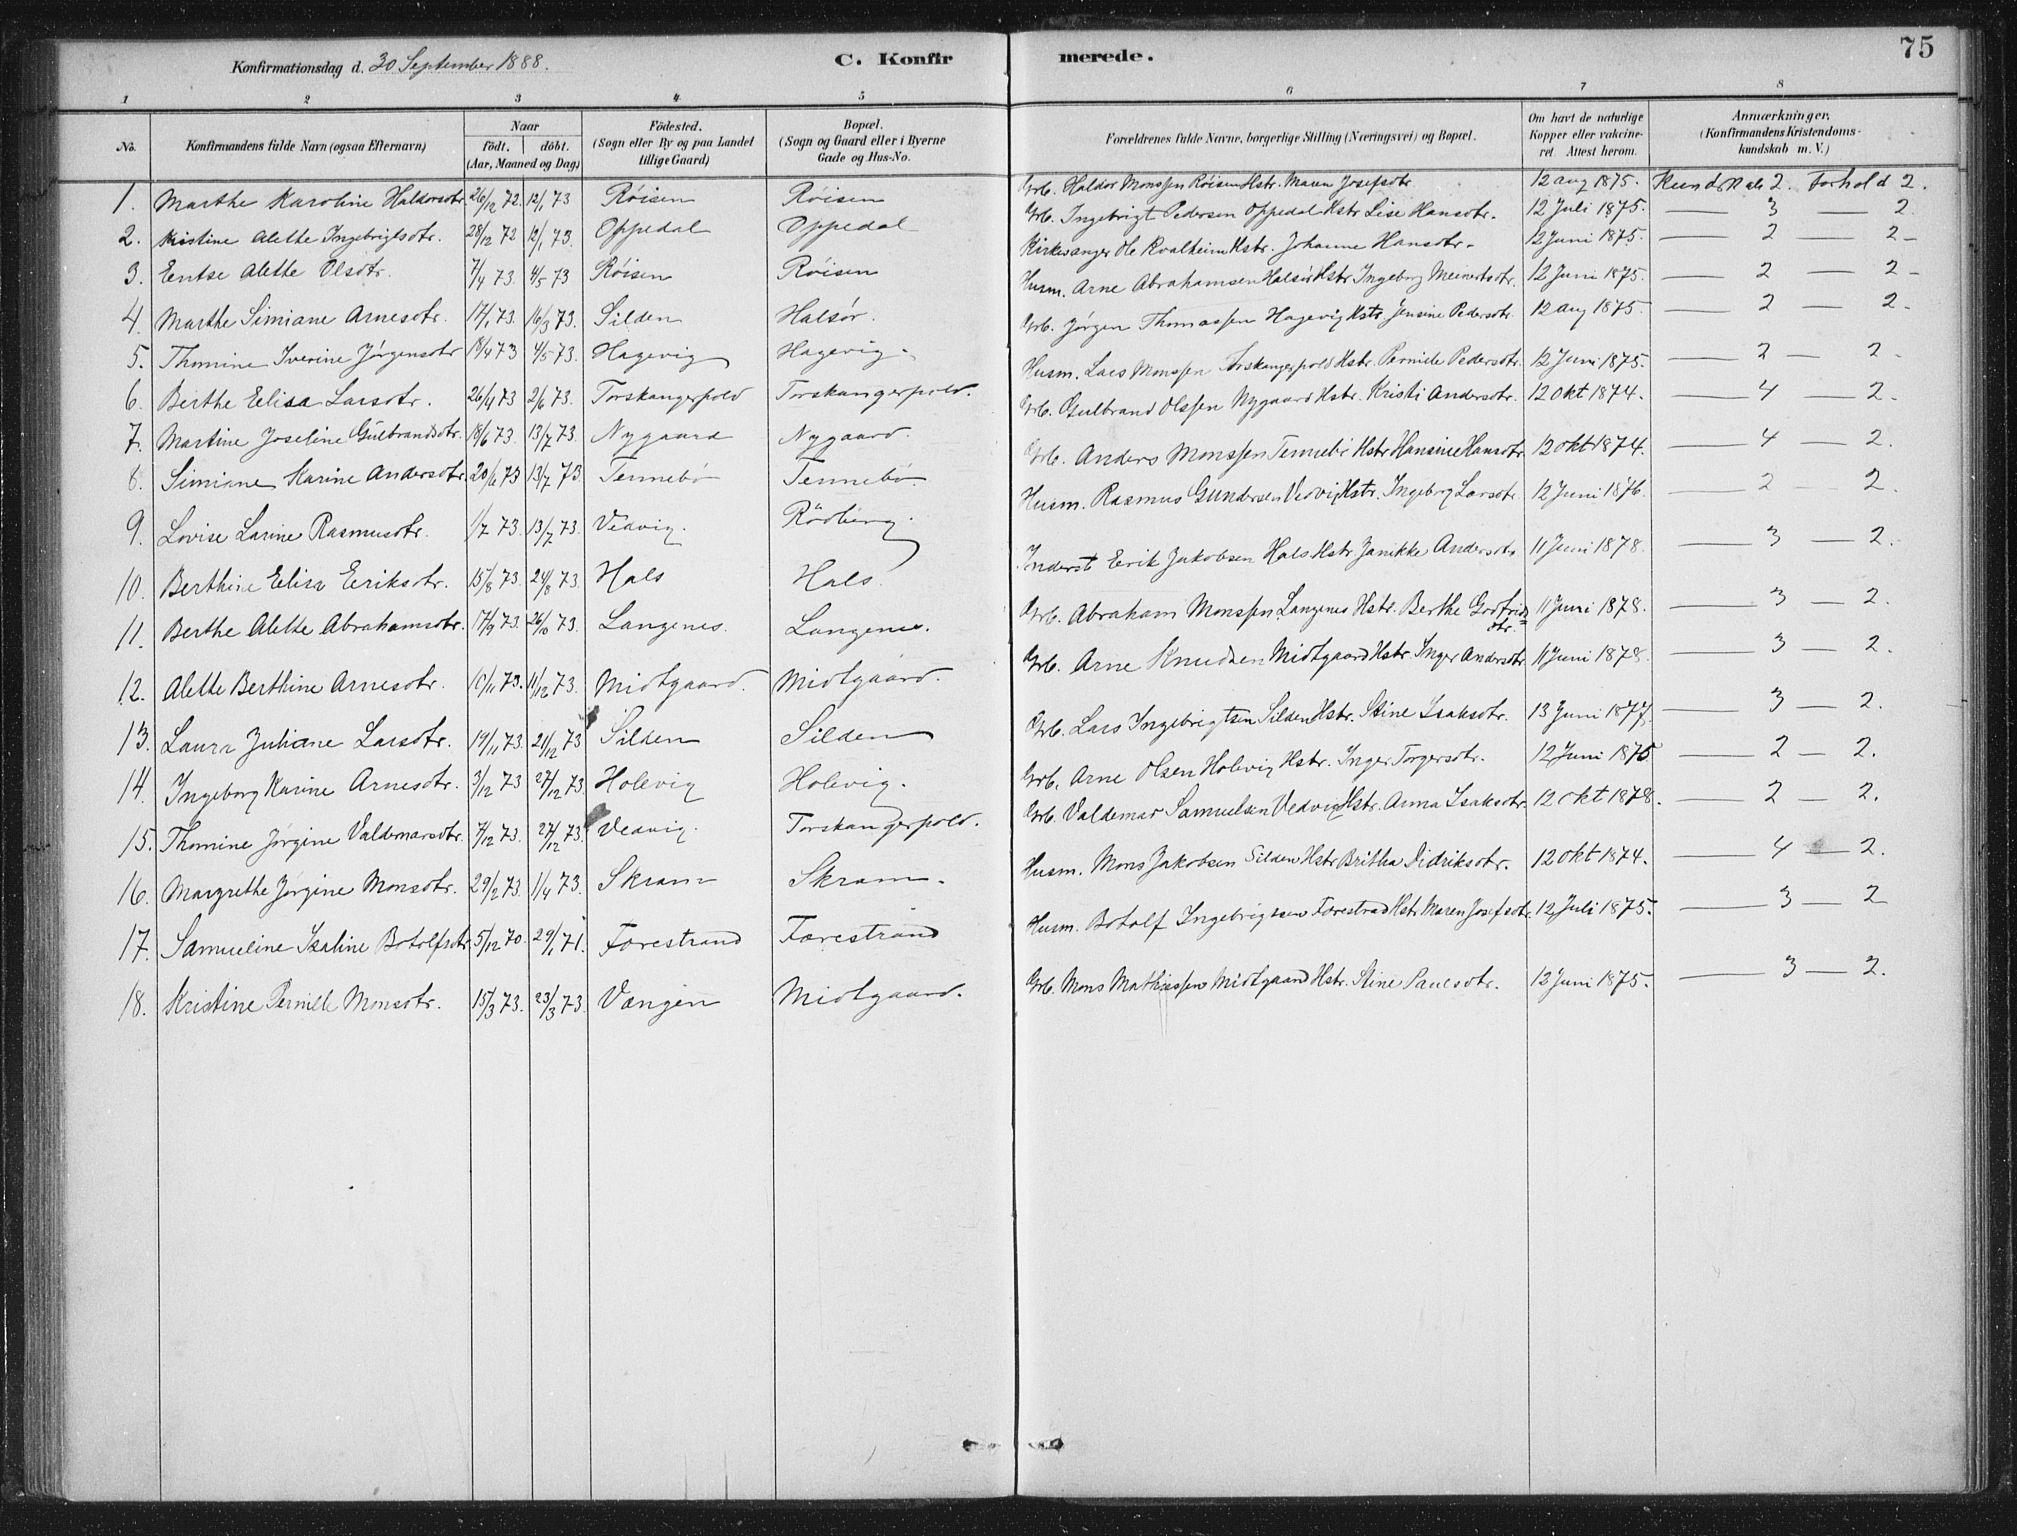 Konfirmationsdag d. 30 September 1888. C. Konfirmerede. 75
1 2 3 4 5 6 7 8
No. Konfirmandens fulde Navn (ogsaa Efternavn) Naar födt. döbt. (Aar, Maaned og Dag) Födested. (Sogn eller By og paa Landet tillige Gaard) Bopæl. (Sogn og Gaard eller i Byerne Gade og Hus-No. Forældrenes fulde Navne, borgerlige Stilling (Næringsvei) og Bopæl. Om havt de naturlige Kopper eller vakcineret. Attest herom. Anmærkninger. (Konfirmandens Kristendomskundskab m. V.)
1. Marthe Karoline Haldorsdtr. 26/12 72. 12/1 73 Röisen Röisen Grb. Haldor Monssen Röisen Hstr. Maren Josefsdtr. 12 aug 1875. Kundskab 2. Forhold 2.
2. Kristine Alette Ingebrigtsdtr. 28/12 72 12/1 73. Oppedal Oppedal Grb. Ingebrigt Pedersen Oppedal Hstr Lise Hansdtr. 12 Juli 1875. — 3 — 2.
3. Eentse Alette Olsdtr. 7/4 73. 4/5 73 Röisen Röisen Kirkesanger Ole Kvalheim Hstr. Johanne Hansdtr. 12 Juni 1875. — 2 — 2 –
4. Marthe Simiane Arnesdtr. 17/1 73. 16/3 73. Silden Halsör. Husm. Arne Abrahamsen Halsör Hstr Ingeborg Meinertsdtr. 12 Juni 1875. — 2 — 2 –
5. Thomine Iverine Jörgensdtr 18/4 73 4/5 73. Hagevig Hagevig. Grb. Jörgen Thomassen Hagevig Hstr. Jensine Pedersdtr. 12 aug 1875. — 2 — 2.
6. Berthe Elisa Larsdtr. 26/4 73 2/6 73. Torskangerpold Torskangerpold. Husm. Lars Monssen Torskangerpold Hstr. Pernille Pedersdtr. 12 Juni 1875. — 2 — 2.
7. Martine Joseline Gulbrandsdtr. 18/6 73. 13/7 73. Nygaard Nygaard. Grb. Gulbrand Olssen Nygaard Hstr. Kristi Andersdtr. 12 Okt 1874. — 4 — 2.
8. Simiane Karine Andersdtr. 20/6 73 13/7 73. Tennebö Tennebö. Grb. Anders Monssen Tennebö Hstr Hansine Hansdtr 12 Okt 1874. — 4 — 2.
9. Lovise Larine Rasmusdtr. 1/7 73. 13/7 73. Vedvig. Rödberg. Husm. Rasmus Gundersen Vedvig Hstr. Ingeborg Larsdtr. 12 Juni 1876. — 2 — 2.
10. Berthine Elisa Eriksdtr. 15/8 73. 24/8 73 Hals Hals. Inderst Erik Jakobsen Hals Hstr. Janikke Andersdtr 11 Juni 1878. — 3 — 2.
11. Berthe Alette Abrahamsdtr. 17/9 73. 26/10 73. Langenes. Langenes. Grb. Abraham Monssen Langenes Hstr. Berthe Godfridsdtr. 11 Juni 1878. — 3 — 2.
12. Alette Berthine Arnesdtr. 10/11 73. 11/12 73. Midtgaard. Midtgaard. Grb. Arne Knudsen Midtgaard Hstr. Inger Andersdtr 11 Juni 1878. — 3 — 2.
13. Laura Juliane Larsdtr. 19/11 73. 21/12 73 Silden Silden Grb. Lars Ingebrigtsen Silden Hstr. Stine Isaksdtr. 13 Juni 1877. — 3 — 2.
14. Ingeborg Karine Arnesdtr. 3/12 73 27/12 73. Holevig Holevig. Grb. Arne Olsen Holevig Hstr. Inger Torgersdtr. 12 Juni 1875 — 2 — 2.
15. Thomine Jörgine Valdemarsdtr. 7/12 73. 27/12 73. Vedvig. Torskangerpold. Grb. Valdemar Samuelsen Vedvig Hstr. Anna Isaksdtr. 12 Okt 1878. — 2 — 2.
16. Margrethe Jörgine Monsdtr. 29/2 73. 1/4 73. Skram Skram. Husm. Mons Jakobsen Silden Hstr Britha Didriksdtr. 12 Okt 1874. — 4 — 2.
17. Samueline Isaline Botolfsdtr. 5/12 70. 29/1 71. Forestrand Forestrand Husm. Botolf Ingebrigtsen Forestrand Hstr Maren Josefsdtr. 12 Juli 1875. — 3 — 2
18. Kristine Pernille Monsdtr. 15/3 73. 23/3 73. Vangen Midtgaard. Grb. Mons Mathiassen Midtgaard Hstr. Stine Paulsdtr. 12 Juni 1875. — 3 — 2.